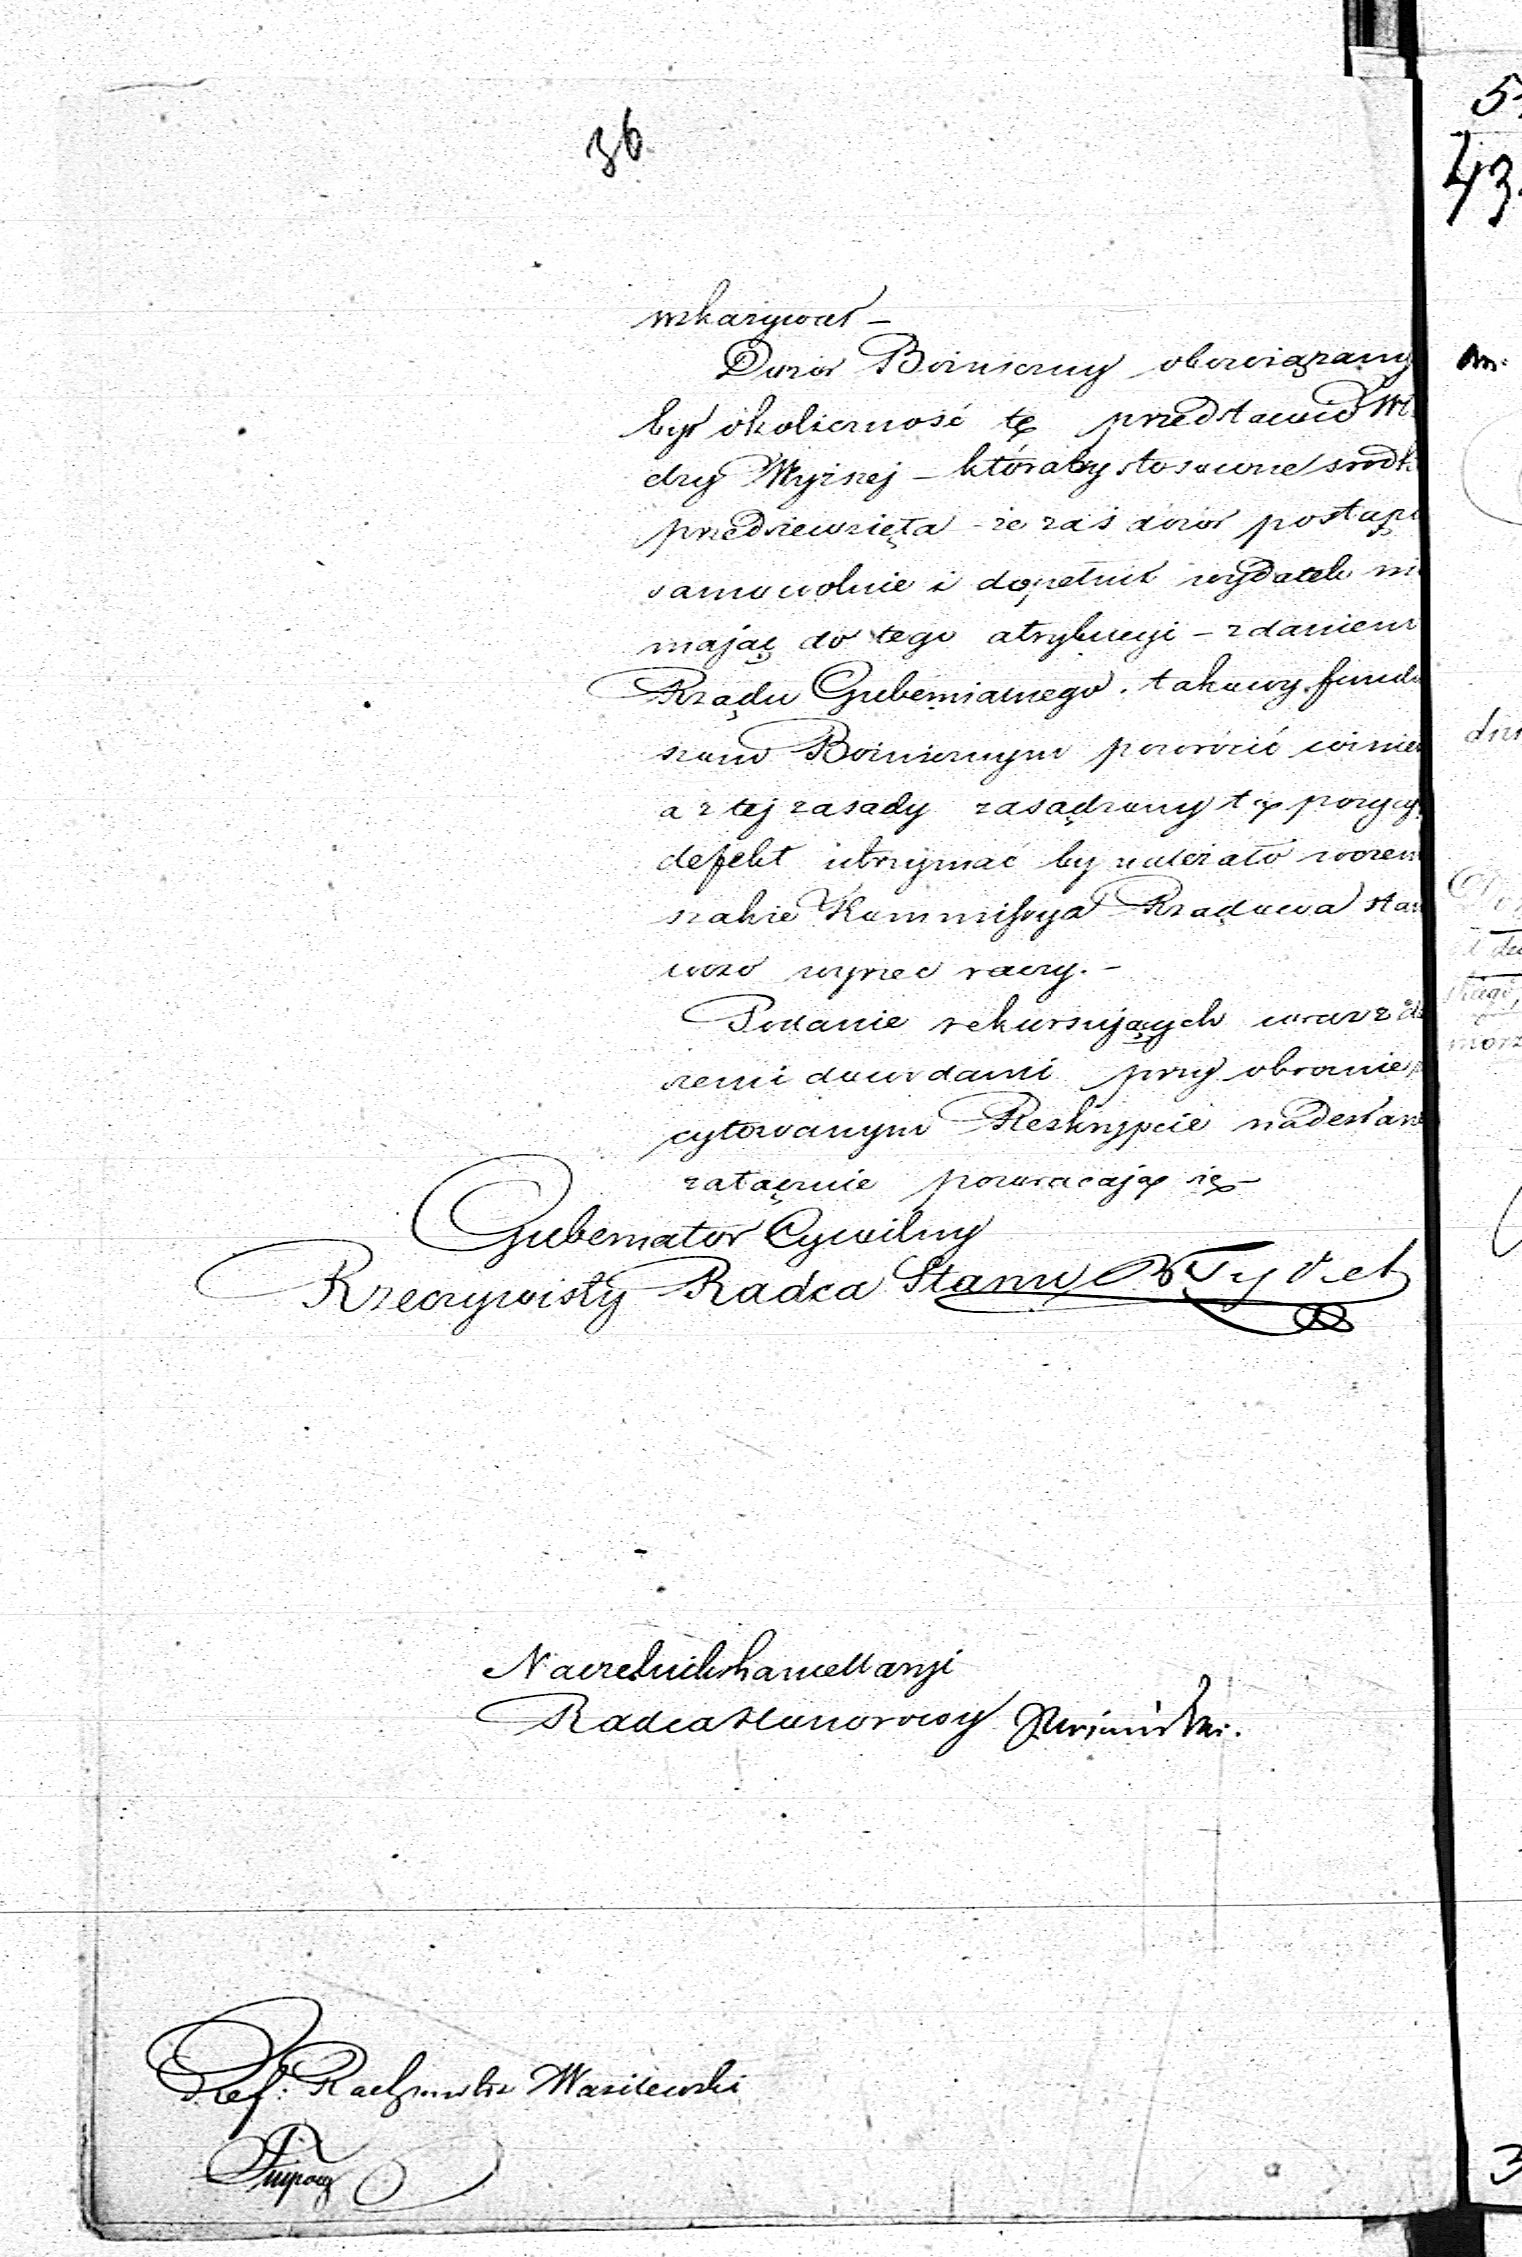 36.
wskazywał –
Dozór Bóżniczny obowiązany
był okoliczność tę przedstawić Wł
dzy Wyższej – któraby stosowne środk
przedsięwzięła – że zaś dozór postąpi
samowolnie i dopełnił wydatek ni
mając do tego atrybucyi – zdaniem
Rządu Gubernialnego takowy fundu
szom Bóżnicznym powrócić winien
a z tej zasady zasądzony tą pozycyą
defekt utrzymać by należało w czem
wszakże Kommissya Rządowa stan
wczo wyrzec raczy. –
Podanie rekursujących wraz z
niemi dowodami przy obronie
cytowanym Reskrypcie nadesłane
załącznie powracają się –
Gubernator Cywilny
Rzeczywisty Radca Stanu
Naczelnik Kancellaryi
Radca Honorowy
Ref: Rachmistrz Wasilewski
43.